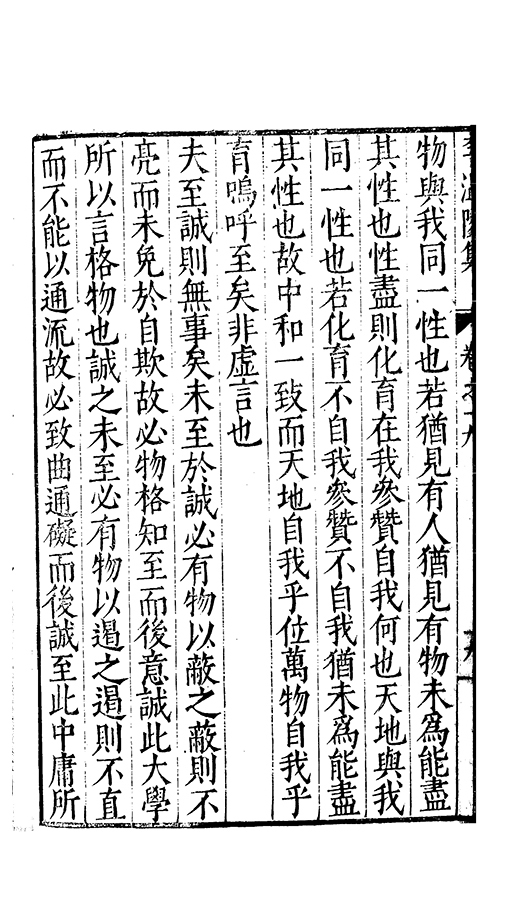 物與我同一性也若猶見有人猶見有物未爲能盡
其性也性盡則化育在我參贊自我何也天地與我
同一性也若化育不自我參贊不自我猶未爲能盡
其性也故中和一致而天地自我乎位萬物自我乎
育嗚呼至矣非虛言也
夫至誠則無事矣未至於誠必有物以蔽之蔽則不
亮而未免於自欺故必物格知至而後意誠此大學
所以言格物也誠之未至必有物以遏之遏則不直
而不能以通流故必致曲通礙而後誠至此中庸所